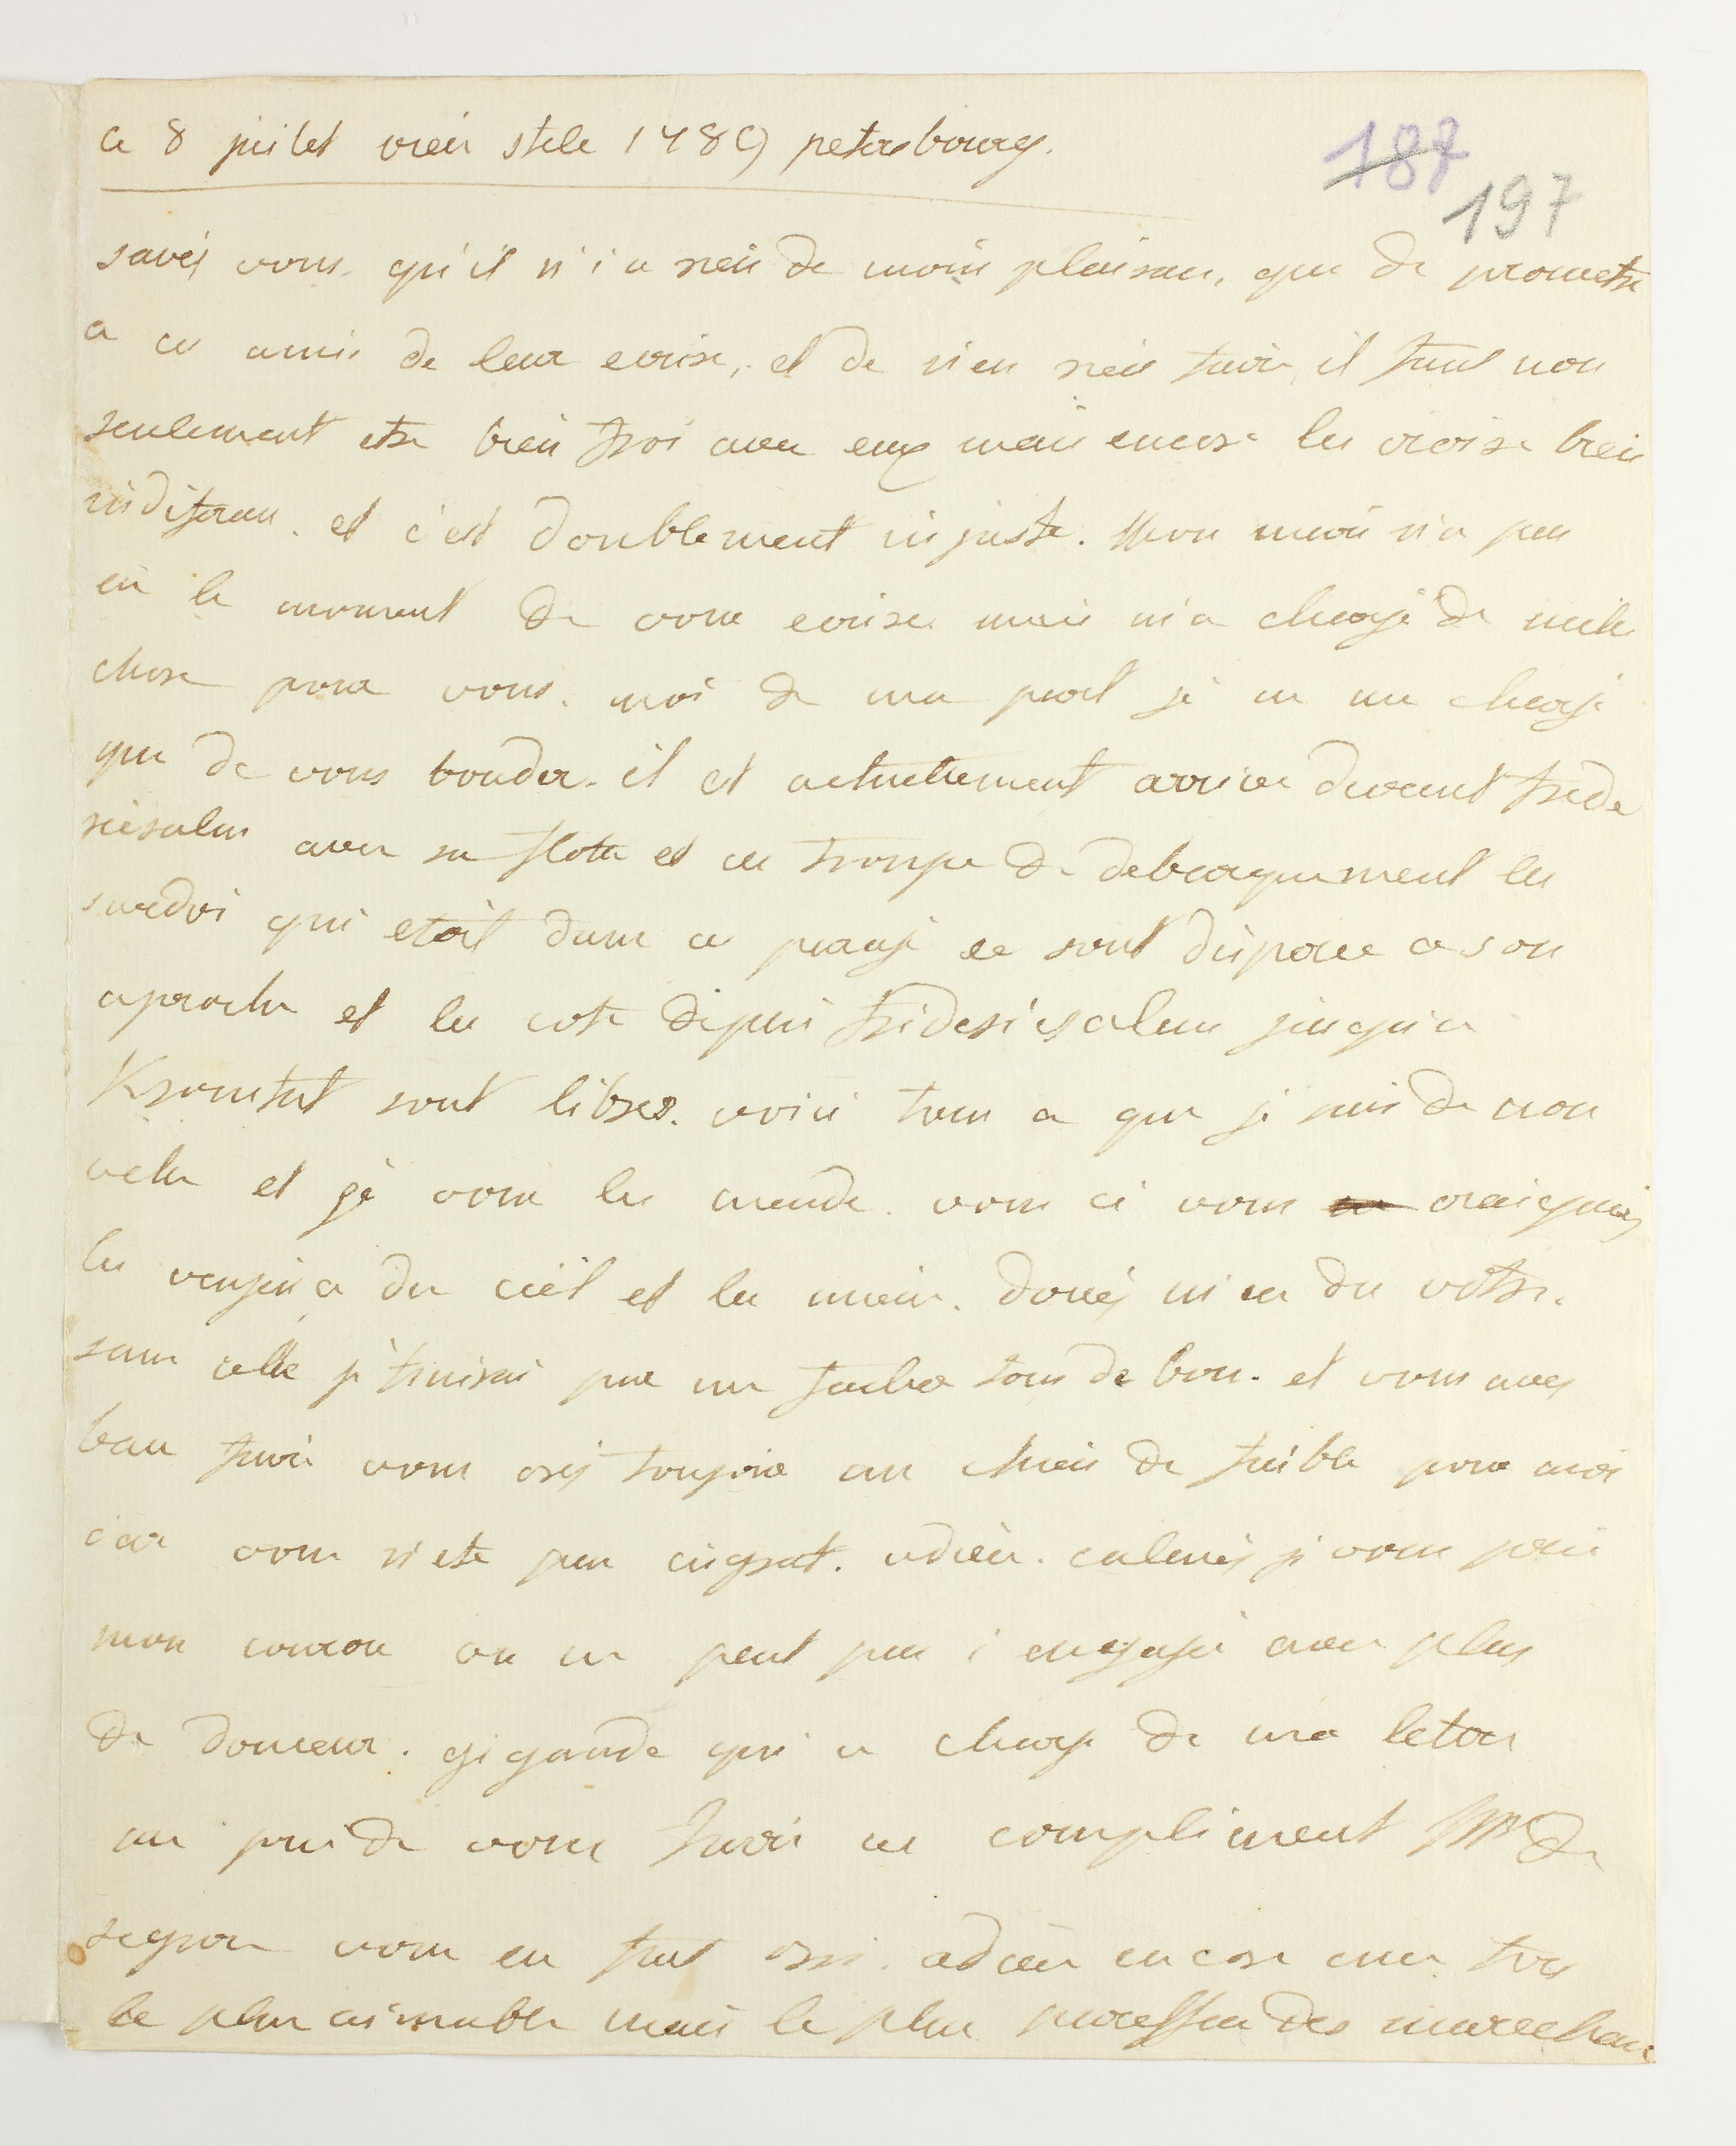 ce 8 juilet vieu stile 1789 petersbourg.
187
197
savés vous qu'il n'i a rien de moin plaisan, que de prometre
a ces amis de leur ecrire, et de n'en rien faire, il faut non
seulement etre bien froi avec eux mais encore les croire bien
indiferan. et c'est doublement injuste. Mon mari n'a pas
eu le moment de vous ecrire mais m'a chargé de mile
chose pour vous. moi de ma part je ne me charge
que de vous bouder. il et actuellement arrivé devant frede
riesalm avec sa flote et ces troupe de debarquement les
suedoi qui etoit dans ce parage se sont disperce a son
aproche et les cote depui frideriesalm jusqu'a
Kronstat sont libres. voici tous ce que je sais de nou
velle et je vous les mande. vous ci vous craignies
les vengence du ciel et les mien. donés m'en du votre.
sans cella je finirai par me facher tous de bon. et vous aves
bau faire vous avés toujour un chien de faible pour moi
car vous n'ete pas eingrat. adieu. calmés je vous prie
mon couroux on ne peut pas i engager avec plus
de douceur. gigande qui ce charge de ma letre
me prie de vous faire ces compliment Mr de
segur vous en fait ossi. adieu encore mon tres
le plus aimable mais le plus paresseu des marechau